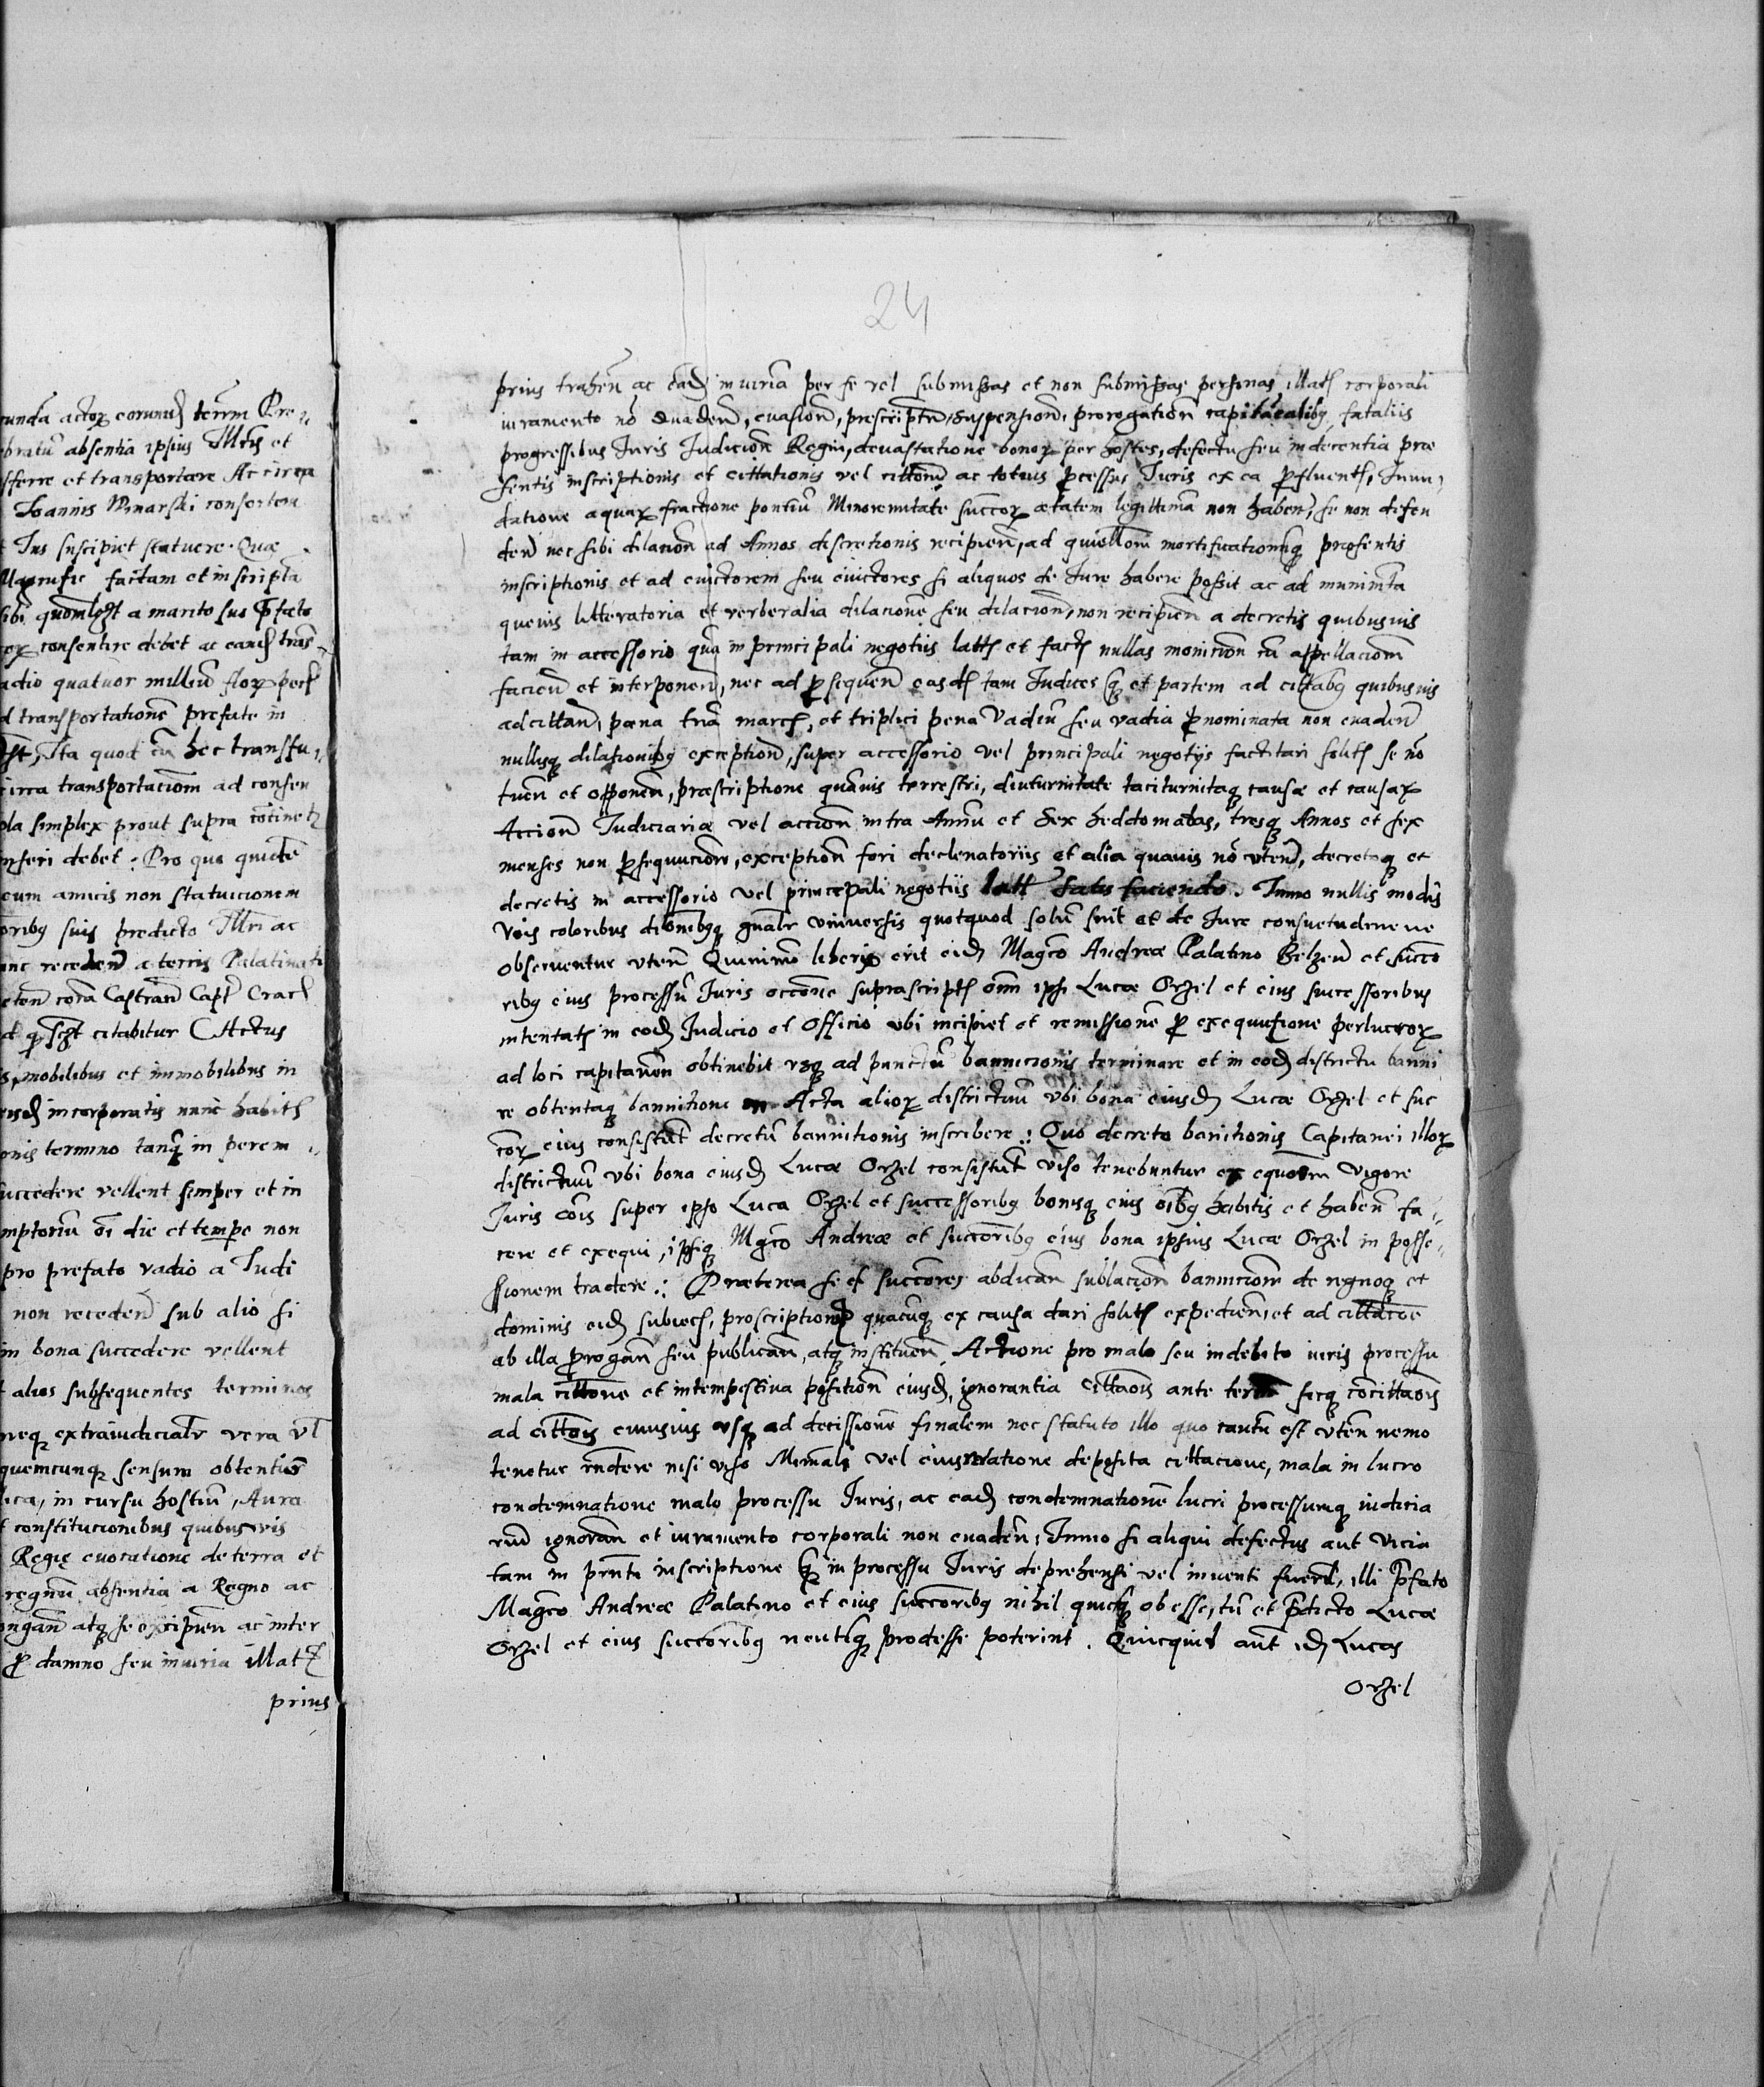 cunda actor eorund terrm Pre
bratu absentia ipsius Illris et
sferre et transportare Ac circa
Ioannis Minarski consortem
t Ius suscipiet statuere. Quæ
Magnific factam et inscripta
sibi a marito suo pfato
consentire debet ac eand trās
adio quatuor milliū flor pecs
d transportationē prefate in
Ita quod cū hec transfu
circa transportaciom ad consen
ola simplex prout supra cōtinet
nseri debet: Pro quo quidē
cum amicis non statuicionem
oribq suis predicto Illri ac
nc recedend a terris Palatinat
corā Castran Capt Crac
d citabitur Actus
s mobilibus et immobilibus in
eisd incorporatis nunc habits
onis termino tanq in perem
succedere vellent semper et in
mptoriū oī die et tempe non
pro prefato vadio a Iudi
non receden sub alio si
in bona succedere vellent
t alios subsequentes terminos
neq extraiudicialr vera vl
quemcunq sensum obtentus
lica, in cursu hostiū, Aura
t constitucionibus quibusvis
Regię evocatione de terra et
regnū absentia a Regno ac
ongan atq se excipien ac inter
p damno seu iniuria illat
prius
24
prius trahen ac ead iniuria per se vel submissas et non submissas personas illats corporali
iuramento nō evaden, evasion, prescriptn suspension, prorogation fataliis
progressibus Iuris Iudicion Regni, devastatione bonor per hostes, defectu seu indecentia præ
sentis inscriptionis et cittationis vel cittōm ac totius pcessus Iuris ex ea pfluents, Inun
datione aquar fractione pontiū Minorennitate succor ætatem legittimā non haben, se non defen
den nec sibi dilation ad Annos discretionis recipien, ad quiettom mortificationemq presentis
inscriptionis et ad evictorem seu evictores si aliquos de Iure habere possit ac ad munimta
quevis litteratoria et verberalia dilacionē seu dilacion, non recipien a decretis quibusvis
tam in accessorio qua in principali negotiis latts et facts nullas monicion cū appellaciom
facien et interponen, nec ad psequen easd tam Iudices q et partem ad cittabq quibusvis
adcittan, pæna triū marcs, et triplici pena vadiū seu vadia pnominata non evaden
nullisq dilationibq exception, super accessorio vel principali negotijs factitari solits se nō
tuen et opponen, præscriptione quāvis terrestri, diuturnitate taciturnitaq causæ et causar
Accion Iudiciariæ vel accion intra Annū et Sex hebdomadas, tresq Annos et sex
menses non psequucion, exception fori declenatoriis et alia quavis nō vten, decretoq et
decretis in accessorio vel principali negotiis latt satis faciendo. Immo nullis modis
viis coloribus dilonibqq gnalr vniuersis quotquod solū sint et de Iure consuetudineve
observentur vten Quinimo liberū erit eid Magco Andreæ Palatino Belzen et succo
ribq eius processū Iuris occone suprascripts omn ipsi Lucæ Orzel et eius successoribus
intentats in eod Iudicio et Officio ubi incipiet et remissionē p exequutione perlucror
ad loci capitaneū obtinebit vsq ad punctū bannicionis terminare et in eod districtu banni
re obtentaq bannitione in Acta alior districtuū vbi bona eiusd Lucæ Orzel et suc
cor eius consistūt decretū bannitionis inscribere: Quo decreto banitionis Capitanei illor
districtuū vbi bona eiusd Lucæ Orzel consistūt viso tenebuntur vigore
Iuris cois super ipso Luca Orzel et successoribq bonisq eius oibq habitis et haben fa
cere et exequi, ipsiq Mgco Andreæ et succoribq eius bona ipsius Lucæ Orzel in posse
ssionem tradere: Præterea se et succores abdican sublacion banniciom de regnoq et
dominis eid subiecs, proscription quacūq ex causa dari solits expedien, et ad cittacioe
ab illa progan seu publican, atq instituen Actione pro malo seu indebito iuris processu
mala cittone et intempestiva position eiusd, ignorantia cittaois ante secq concittaois
ad cittois cuiusvis vsq ad decissionē finalem nec statuto illo quo cautū est vten nemo
tenetur rndere nisi viso Mimāli vel eius relatione deposita cittacione, mala in lucro
condemnatione malo processu Iuris, ac ead condemnationē lucri processumq iudicia
riū ignoran et iuramento corporali non evaden: Immo si aliqui defectus aut vicia
tam in prnti inscriptione q in processu Iuris deprehensi vel inventi fuerit, illi pfato
Magco Andreæ Palatino et eius succoribq nihil quicq obesse, tū et pdicto Lucæ
Orzel et eius succoribq neutiq prodesse poterint. Quicquid aut id Lucas
Orzel